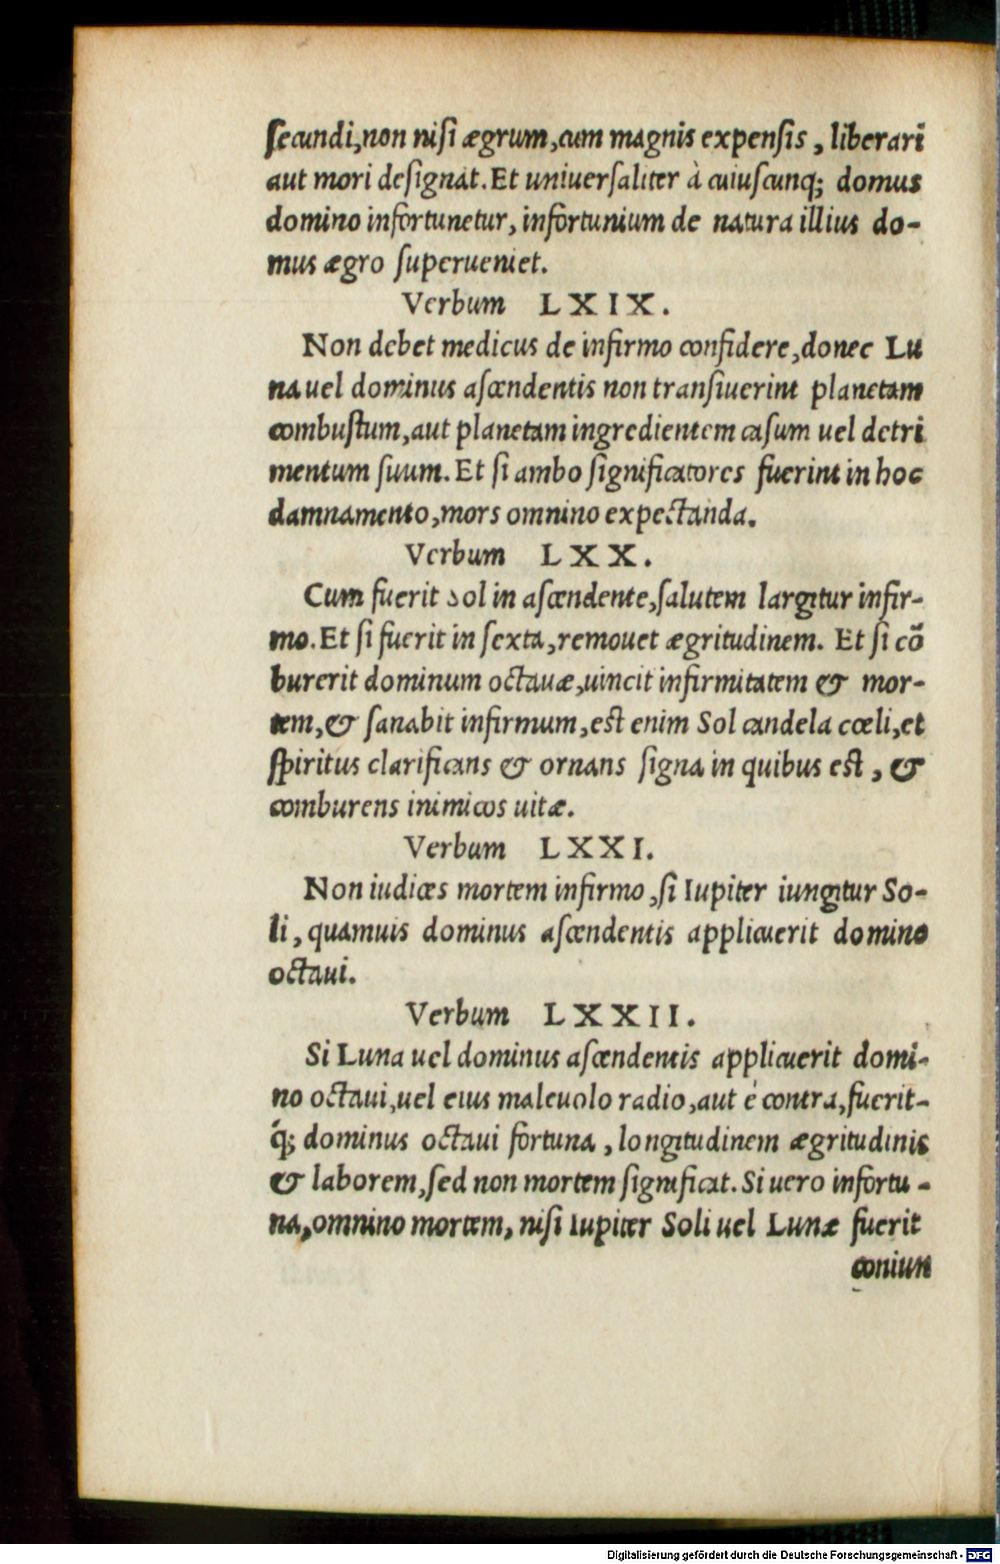 ſecundi, non niſi ægrum, cum magnis expenſis, liberari
aut mori deſignat. Et uniuerſaliter à cuiuſcunq; domus
domino infortunetur, infortunium de natura illius do-
mus ægro ſuperueniet.
Verbum LXIX.
Non debet medicus de infirmo confidere, donec Lu
na uel dominus aſcendentis non tranſiuerint planetam
combuſtum, aut planetam ingredientem caſum uel detri
mentum ſuum. Et ſi ambo ſignificatores fuerint in hoc
damnamento, mors omnino expectanda.
Verbum LXX.
Cum fuerit Sol in aſcendente, ſalutem largitur infir-
mo. Et ſi fuerit in ſexta, remouet ægritudinem. Et ſi cõ
burerit dominum octauæ, uincit infirmitatem & mor-
tem, & ſanabit infirmum, eſt enim Sol candela cœli, et
ſpiritus clarificans & ornans ſigna in quibus eſt, &
comburens inimicos uitæ.
Verbum LXXI.
Non iudices mortem infirmo, ſi Iupiter iungitur So-
li, quamuis dominus aſcendentis applicuerit domino
octaui.
Verbum LXXII.
Si Luna uel dominus aſcendentis applicuerit domi-
no octaui, uel eius maleuolo radio, aut è contra, fuerit-
q́; dominus octaui fortuna, longitudinem ægritudinis
& laborem, ſed non mortem ſignificat. Si uero infortu-
na, omnino mortem, niſi Iupiter Soli uel Lunæ fuerit
coniun
Digitalisierung gefördert durch die Deutsche Forschungsgemeinschaft - DFG